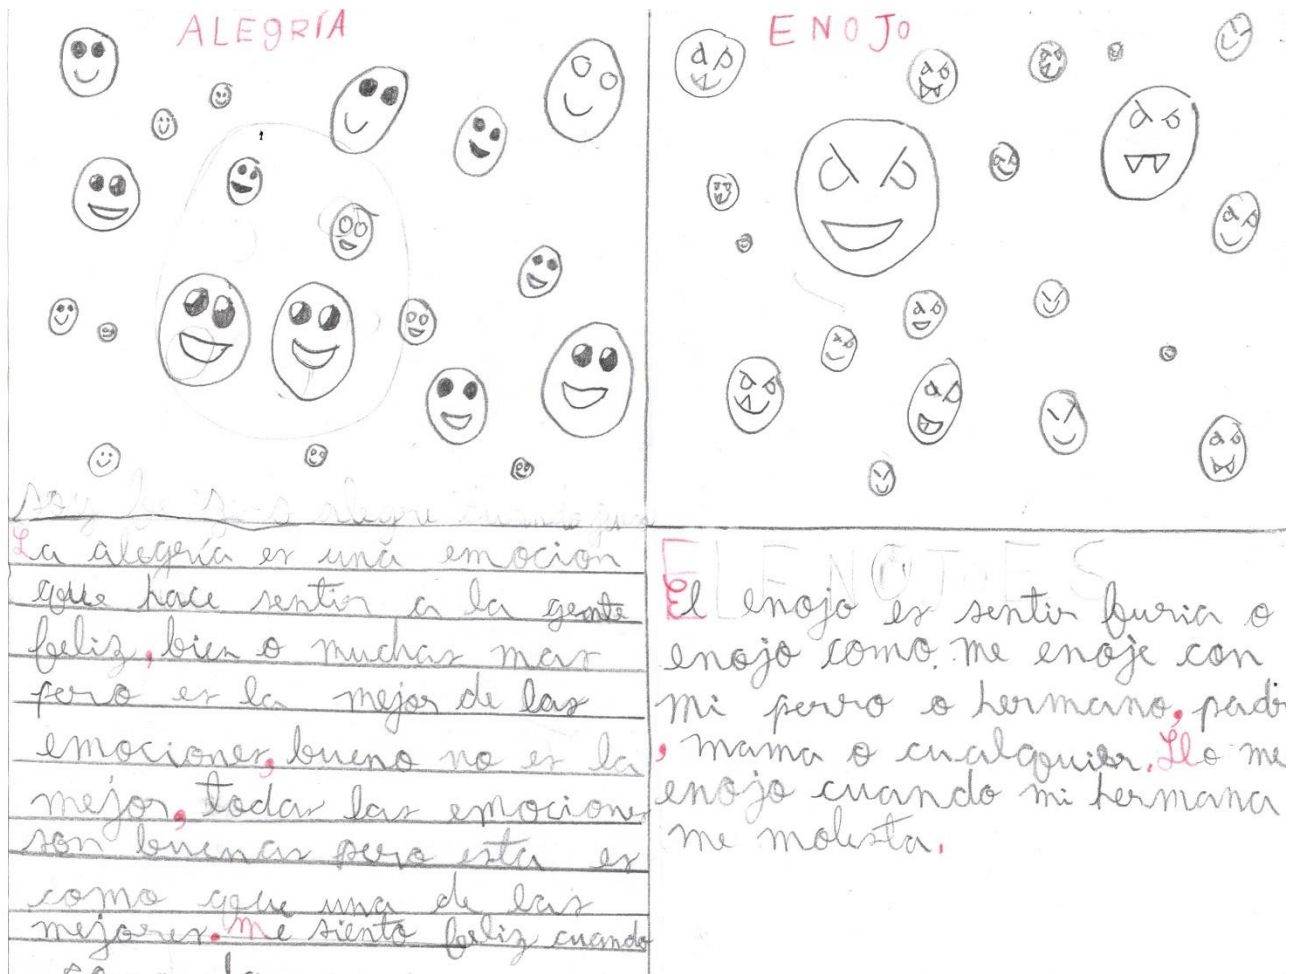 ALEGRÍA
La alegría es una emocion
que hace sentir a la gente
feliz, bien o muchas mas
pero es la mejor de las
emociones, bueno no es la
mejor, todas las emociones
son buenas pero esta es
como que una de las
mejores. Me siento feliz cuando
ENOJO
EL ENOJO ES
El enojo es sentir furia o
enojo como. me enoje con
mi perro o hermano, padr
, mama o cualquier. Llo me
enojo cuando mi hermana
me molesta.